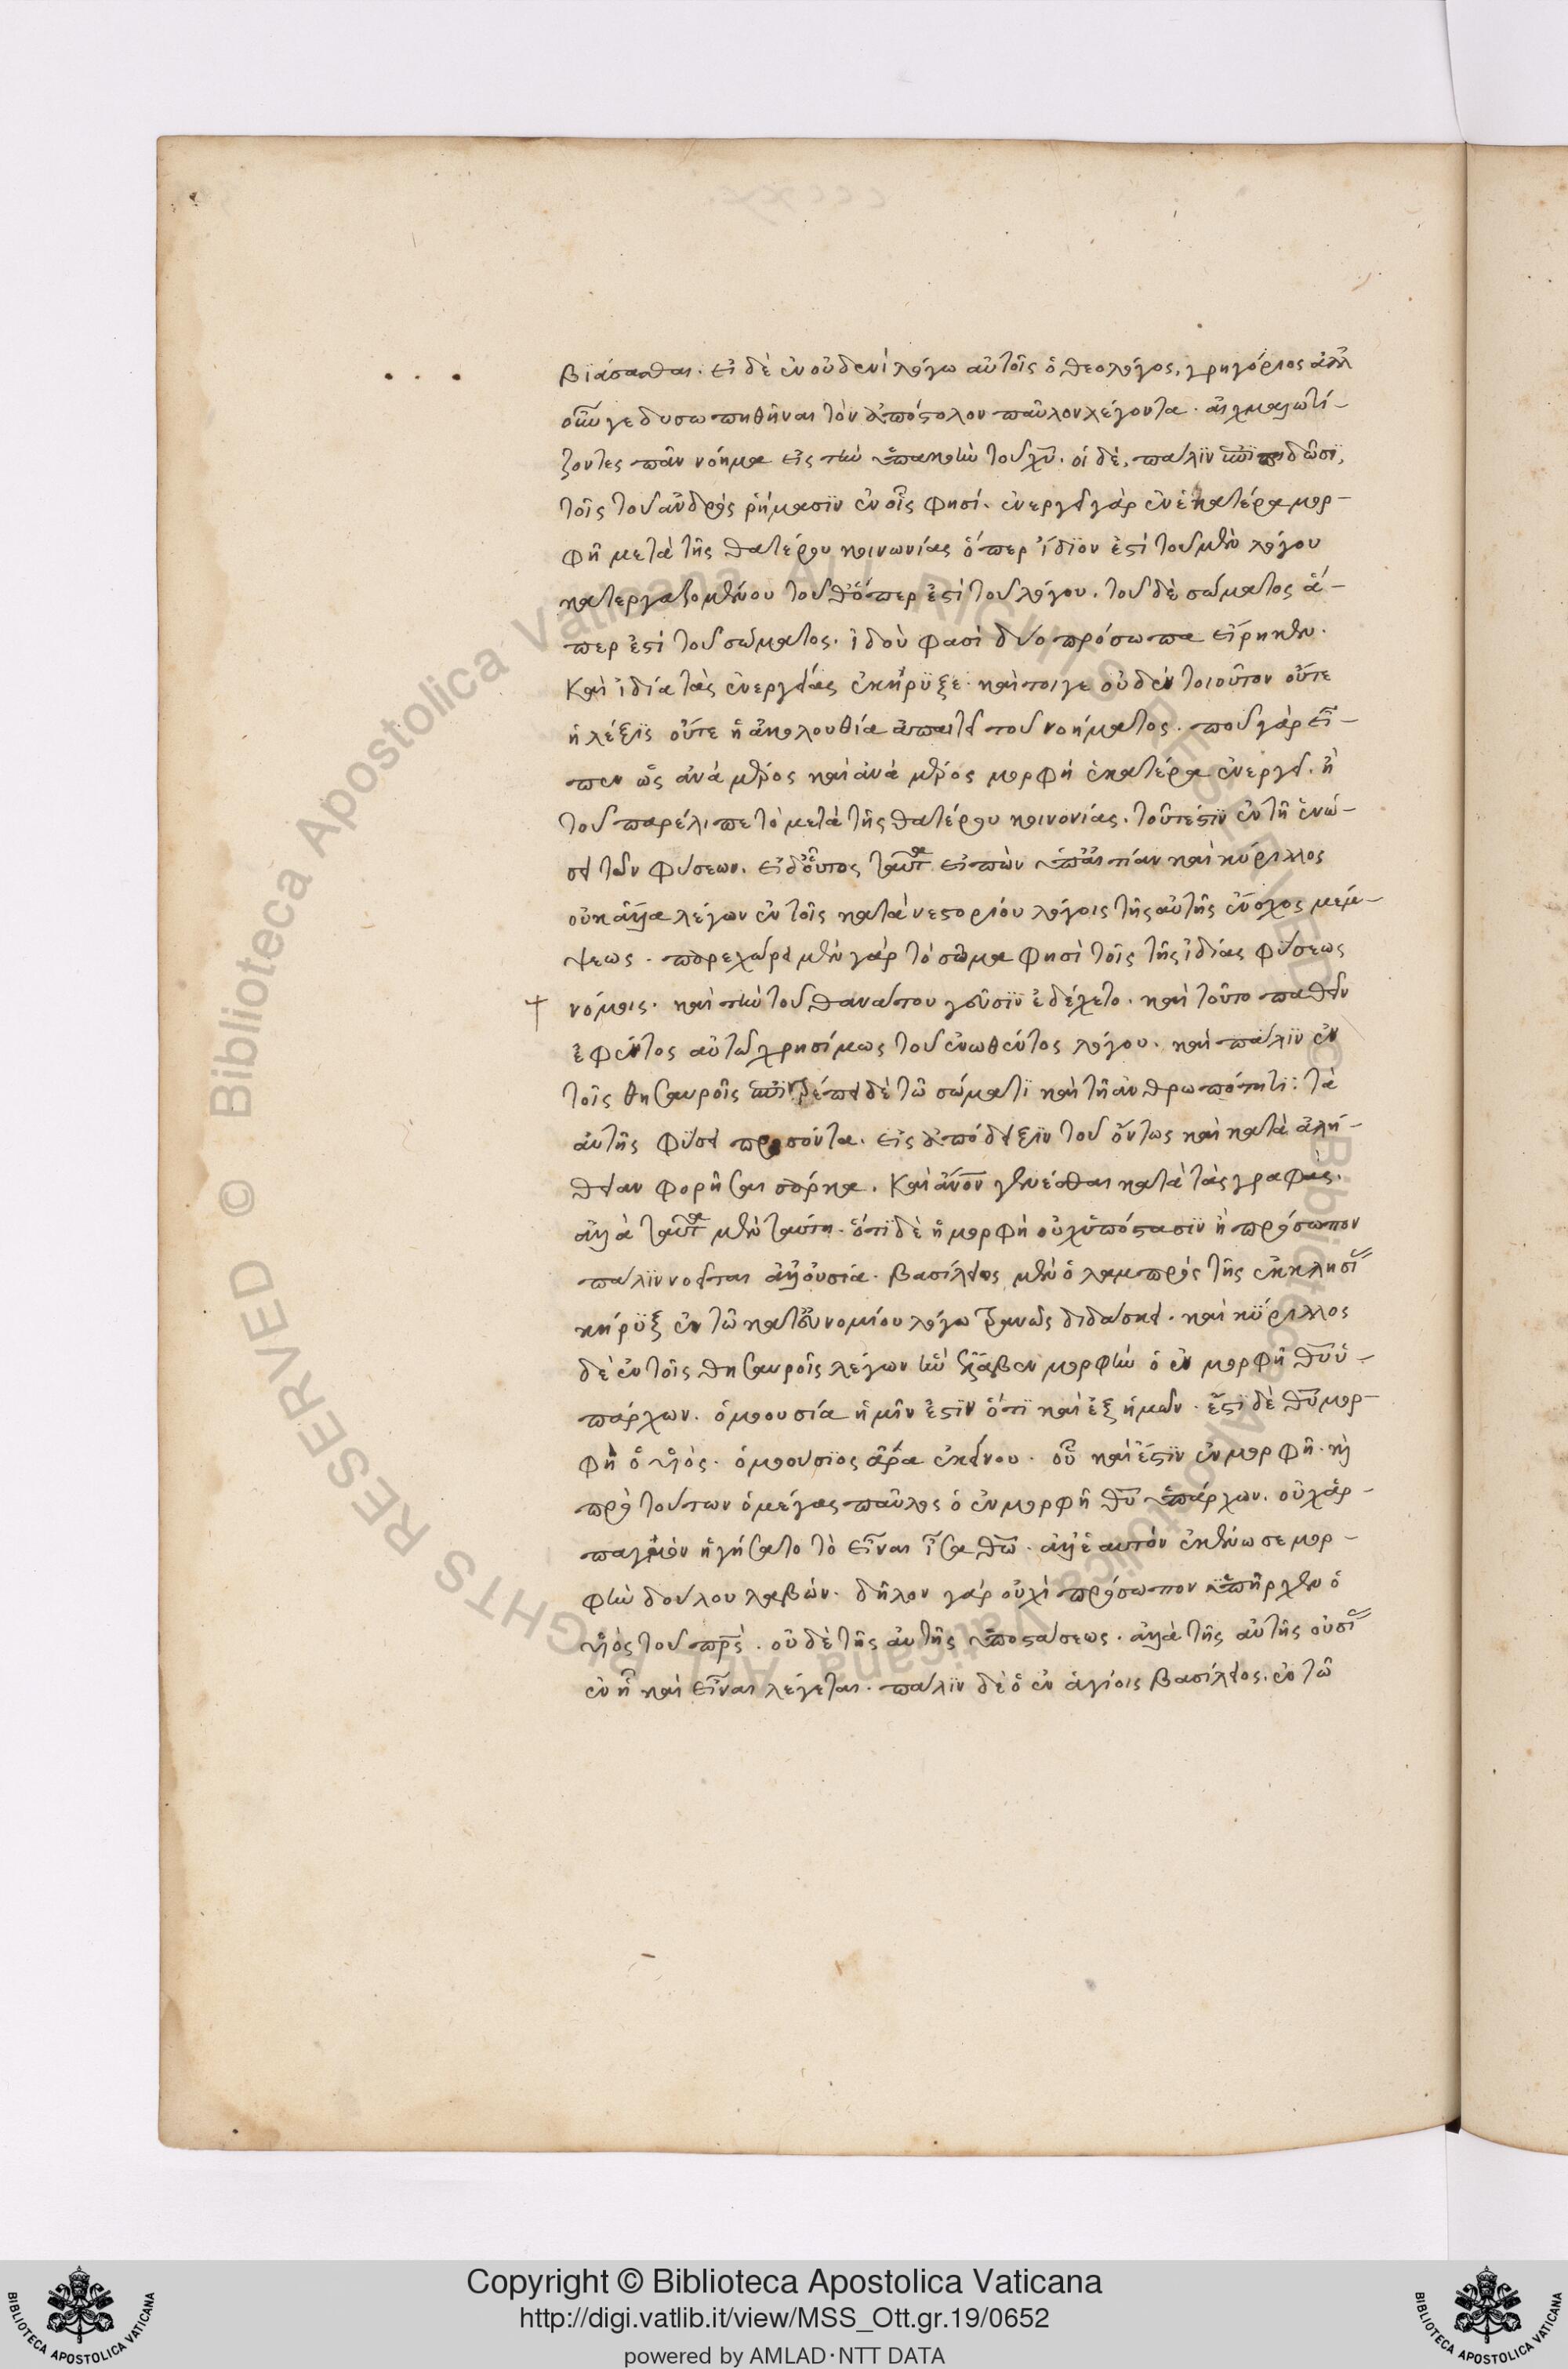 βϊάσασθαι. εἰ δὲ ἐν οὐδενὶ λόγω αὐτοῖς ὁ θεολόγος, γρηγόριος ἀλλ
οὖν γε δυσωπηθῆναι τὸν ἀπόστολον παῦλον λέγοντα. αἰχμαλωτί-
ζοντες πᾶν νόημα εἰς τὴν ὑπακοὴν τοῦ χυ. οἱ δὲ, παλϊν
τοῖς τοῦ ἀνδρὸς ῥήμασϊν ἐν οἷς φησί. ἐνεργεῖ γὰρ ἐν ἑκατέρα μορ-
φῆ μετὰ τῆς θατέρου κοινωνίας ὅπερ ἴδϊον ἐστὶ τοῦ μὲν λόγου
κατεργαζομένου τοῦθ' ὅπερ ἐστὶ τοῦ λόγου. τοῦ δὲ σώματος ἅ-
περ ἐστὶ τοῦ σώματος. ἰδοὺ φασὶ δύο πρόσωπα εἴρηκεν.
Καὶ ἰδία τὰς ἐνεργείας ἐκήρϋξε. καὶ τοιγε οὐδὲν τοιοῦτον οὔτε
ἡ λέξϊς οὔτε ἡ ἀκολουθία ἀπαιτεῖ τοῦ νοήματος. ποῦ γὰρ εἶ-
πεν ὡς ἀνὰ μέρος καὶ ἀνὰ μέρος μορφὴ ἑκατέρα ἐνεργεῖ. ἢ
ποῦ παρέλιπε τὸ μετὰ τῆς θατέρου κοινονίας. τοῦτέστϊν ἐν τῆ ἑνώ-
σει τῶν φύσεων. εἰ δ' οὗτος ταῦτα εἰπὼν ὑπ' αἰτίαν καὶ κύριλλος
οὐκ ἄλλα λέγων ἐν τοῖς κατὰ νεστορίου λόγοις τῆς αὐτῆς ἔνοχος μέμ-
ψεως. παρεχώρει μὲν γὰρ τὸ σῶμα φησὶ τοῖς τῆς ἰδίας φύσεως
νόμοις. καὶ τὴν τοῦ θανάτου γεῦσϊν ἐδέχετο. καὶ τοῦτο παθεῖν
ἐφέντος αὐτῶ χρησίμως τοῦ ἑνωθέντος λόγου. καὶ παλϊν ἐν
τοῖς θησαυροῖς δὲ τῶ σώματϊ καὶ τῆ ἀνθρωπότητϊ: τὰ
αὐτῆς φύσει προσόντα. εἰς ἀπόδειξϊν τοῦ ὄντως καὶ κατὰ ἀλή-
θειαν φορῆσαι σάρκα. Καὶ ἄνον γενέσθαι κατὰ τὰς γραφάς.
ἀλλὰ ταῦτα μὲν ταύτη. ὅτϊ δὲ ἡ μορφὴ οὐχ ὑπόστασϊν ἢ πρόσωπον
παλϊν νοεῖται ἀλλ' οὐσία. βασίλειος μὲν ὁ λαμπρὸς τῆς ἐκκλησί
κήρϋξ ἐν τῶ κατ' εὐνομίου λόγω τρανῶς διδάσκει. καὶ κϋριλλος
δὲ ἐν τοῖς θησαυροῖς λέγων ἣν ἔλαβεν μορφὴν ὁ ἐν μορφῆ θυ ὑ-
πάρχων. ὁμοουσία ἡμῖν ἐστϊν ὅτϊ καὶ ἐξ ἡμῶν. ἔστϊ δὲ θυ μορ-
φὴ ὁ υἱὸς. ὁμοούσϊος ἄρα ἐκείνου. οὗ καὶ ἔστϊν ἐν μορφῆ. καὶ
πρὸ τούτων ὁ μέγας παῦλος ὁ ἐν μορφῆ θυ ὑπάρχων. οὐχ ἁρ-
παγμὸν ἡγήσατο τὸ εἶναι ἶσα θω. ἀλλ' ἑαυτὸν ἐκένωσε μορ-
φὴν δούλου λαβών. δῆλον γάρ οὐχὶ πρόσωπον ὑπῆρχεν ὁ
υἱὸς τοῦ πρς. οὐδὲ τῆς αὐτῆς ὑποστάσεως. ἀλλὰ τῆς αὐτῆς οὐσί
ἐν ἧ καὶ εἶναι λέγεται. παλϊν δὲ ὁ ἐν ἁγίοις βασίλειος. ἐν τῶ
Copyright © Biblioteca Apostolica Vaticana
http://digi.vatlib.it/view/MSS_Ott.gr.19/0652
powered by AMLAD·NTT DATA